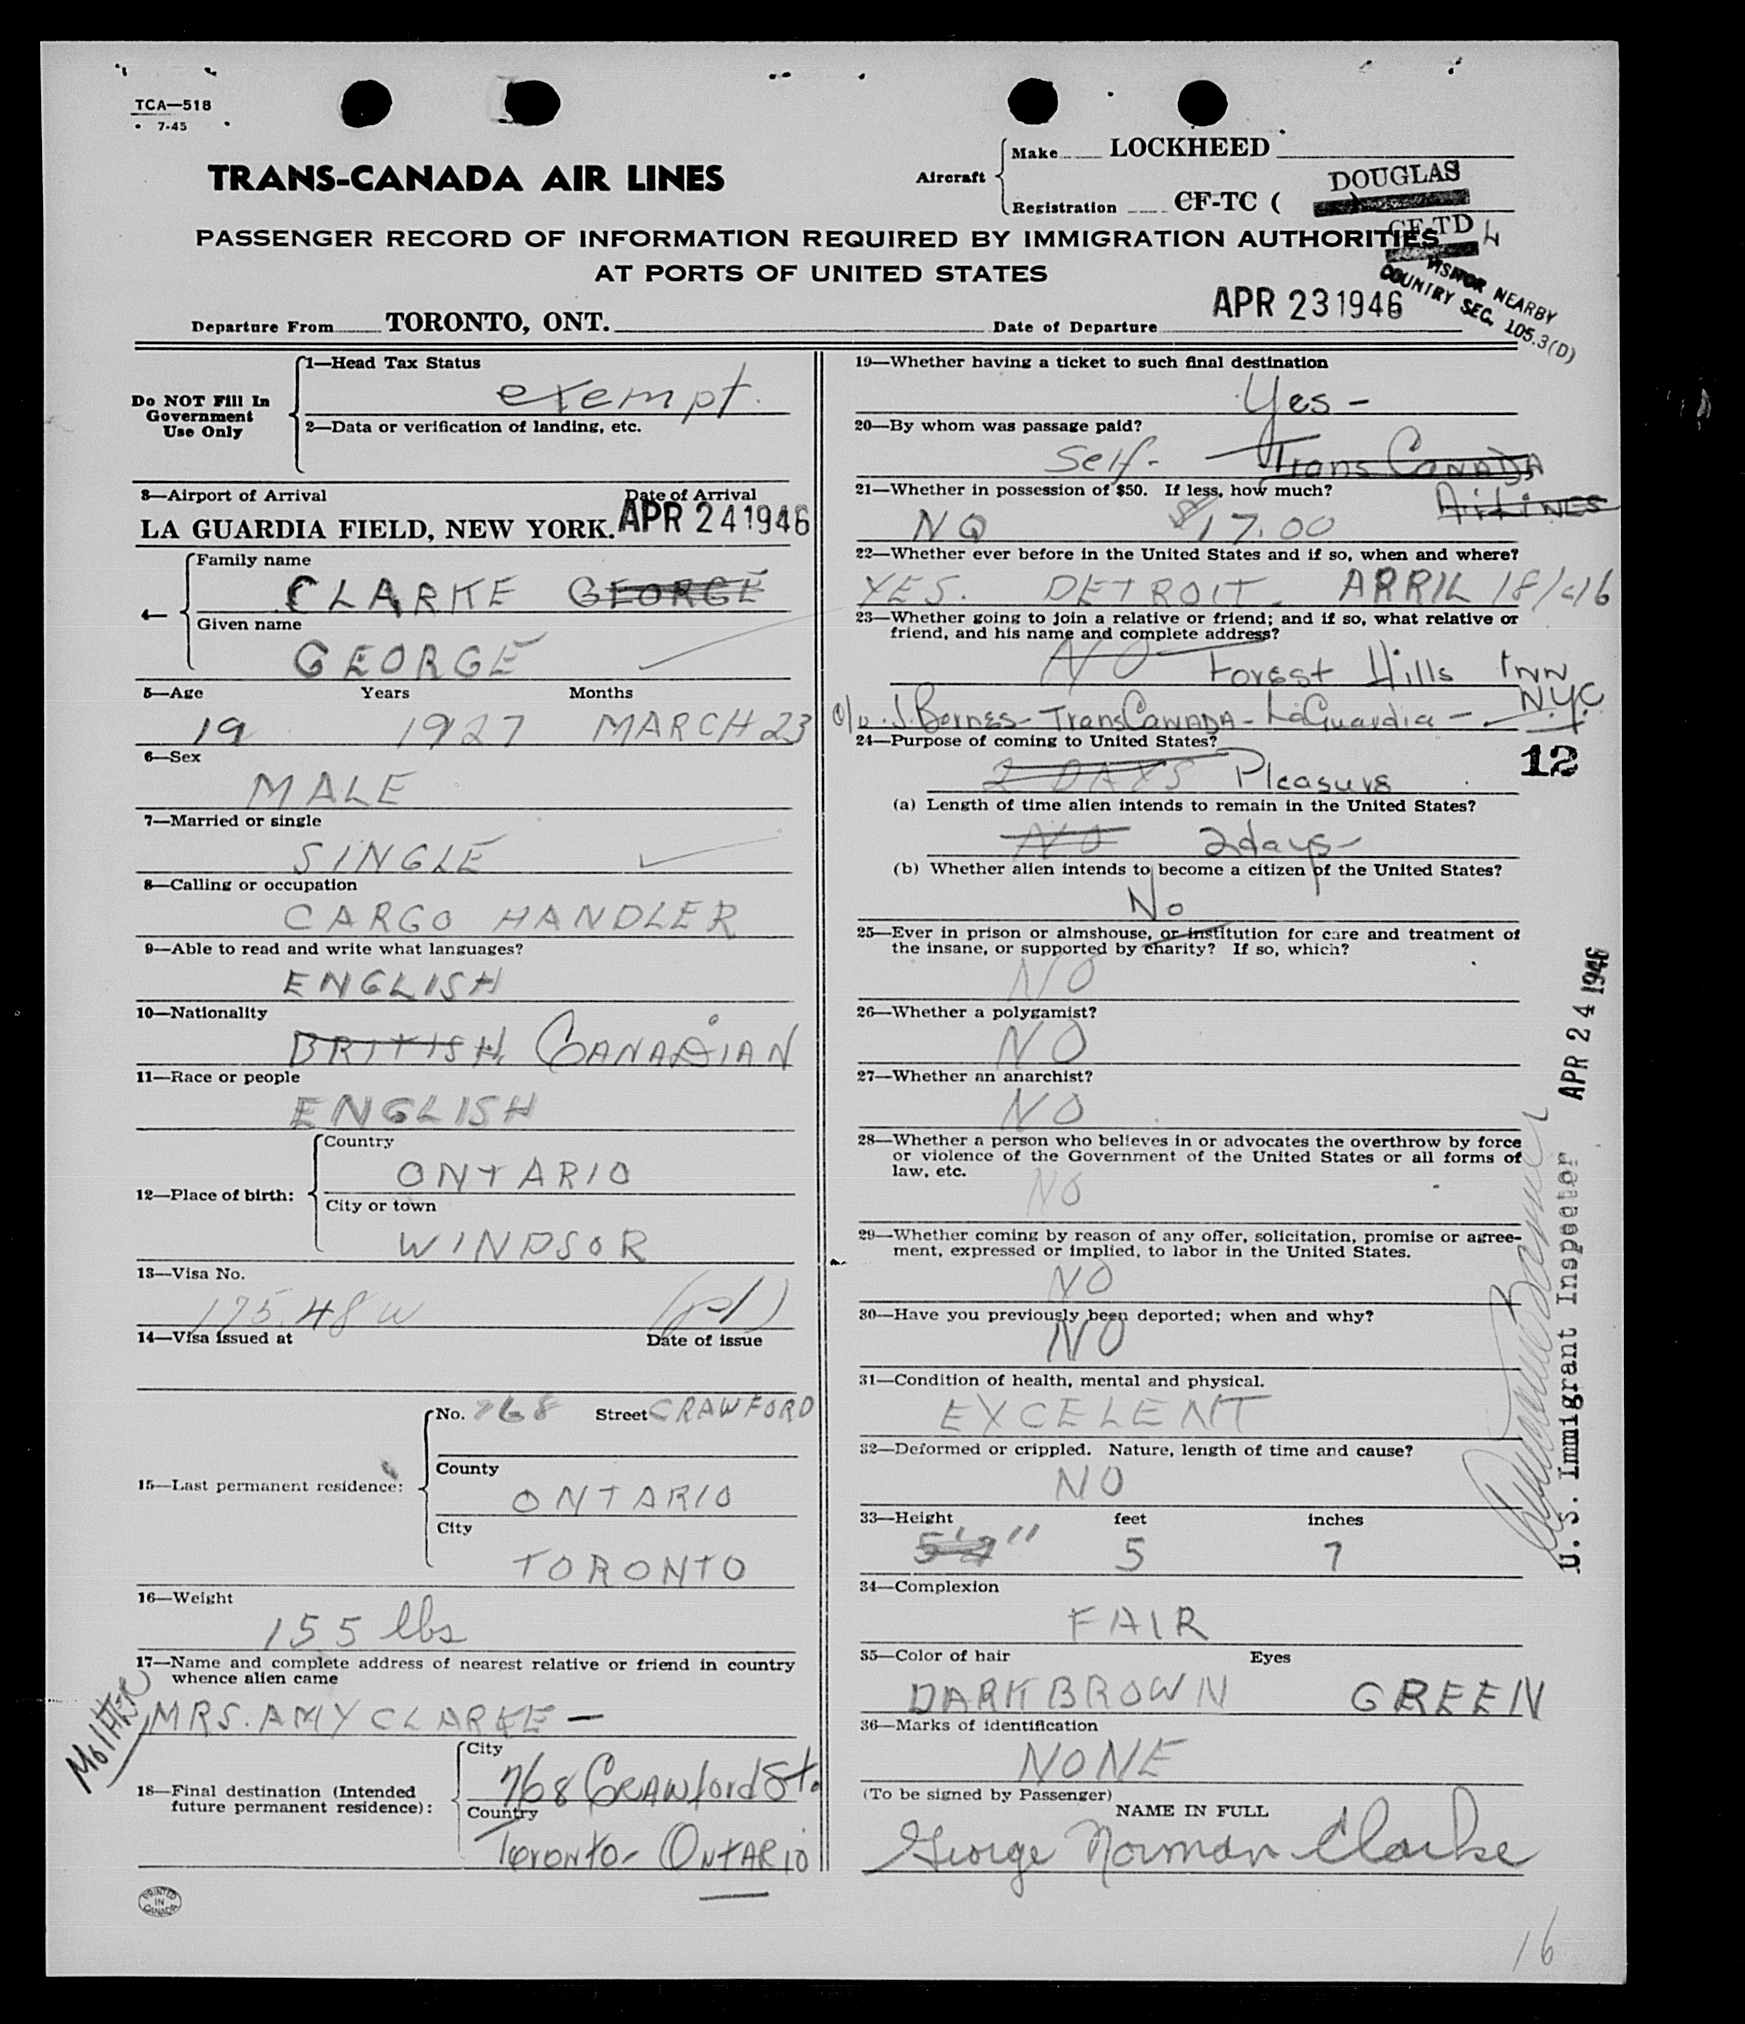 TCA—518
7-45
TRANS-CANADA AIR LINES
Aircraft
Make LOCKHEED
DOUGLAS
Registration CF-TC (
CF-TD L
PASSENGER RECORD OF INFORMATION REQUIRED BY IMMIGRATION AUTHORITIES
AT PORTS OF UNITED STATES
VISITOR NEARBY
COUNTRY SEC. 105.3(D)
Departure From TORONTO, ONT.
Date of Departure APR 23 1946
Do NOT Fill In
Government
Use Only
1—Head Tax Status
exempt.
2—Data or verification of landing, etc.
3—Airport of Arrival Date of Arrival
LA GUARDIA FIELD, NEW YORK. APR 24 1946
4—
Family name
CLARKE GEORGE
Given name
GEORGE
5—Age Years Months
19 1927 MARCH 23
6—Sex
MALE
7—Married or single
SINGLE
8—Calling or occupation
CARGO HANDLER
9—Able to read and write what languages?
ENGLISH
10—Nationality
BRITISH CANADIAN
11—Race or people
ENGLISH
12—Place of birth:
Country
ONTARIO
City or town
WINDSOR
13—Visa No.
175.48 W
14—Visa issued at Date of issue
15—Last permanent residence:
No. 768 Street CRAWFORD
County
ONTARIO
City
TORONTO
16—Weight
155 lbs
17—Name and complete address of nearest relative or friend in country
whence alien came
MOTHER
MRS. AMY CLARKE —
18—Final destination (Intended
future permanent residence):
City
768 CRAWford St.
Country
Toronto- ONTARIO
PRINTED
IN
CANADA
19—Whether having a ticket to such final destination
Yes -
20—By whom was passage paid?
Self- Trans CANADA
AirLINES
21—Whether in possession of $50. If less, how much?
NO $17.00
22—Whether ever before in the United States and if so, when and where?
YES. DETROIT. APRIL 18/46
23—Whether going to join a relative or friend; and if so, what relative or
friend, and his name and complete address?
NO Forest Hills INN
N.Y.C.
c/o J. Barnes - Trans CANADA - LaGuardia -
24—Purpose of coming to United States?
2 DAYS Pleasure
12
(a) Length of time alien intends to remain in the United States?
NO 2 days-
(b) Whether alien intends to become a citizen of the United States?
No
25—Ever in prison or almshouse, or institution for care and treatment of
the insane, or supported by charity? If so, which?
NO
26—Whether a polygamist?
NO
27—Whether an anarchist?
NO
28—Whether a person who believes in or advocates the overthrow by force
or violence of the Government of the United States or all forms of
law, etc.
NO
29—Whether coming by reason of any offer, solicitation, promise or agree-
ment, expressed or implied, to labor in the United States.
NO
30—Have you previously been deported; when and why?
NO
31—Condition of health, mental and physical.
EXCELENT
32—Deformed or crippled. Nature, length of time and cause?
NO
33—Height feet inches
5'7" 5 7
34—Complexion
FAIR
35—Color of hair Eyes
DARK BROWN GREEN
36—Marks of identification
NONE
(To be signed by Passenger)
NAME IN FULL
George Norman Clarke
APR 24 1946
U. S. Immigrant Inspector
16